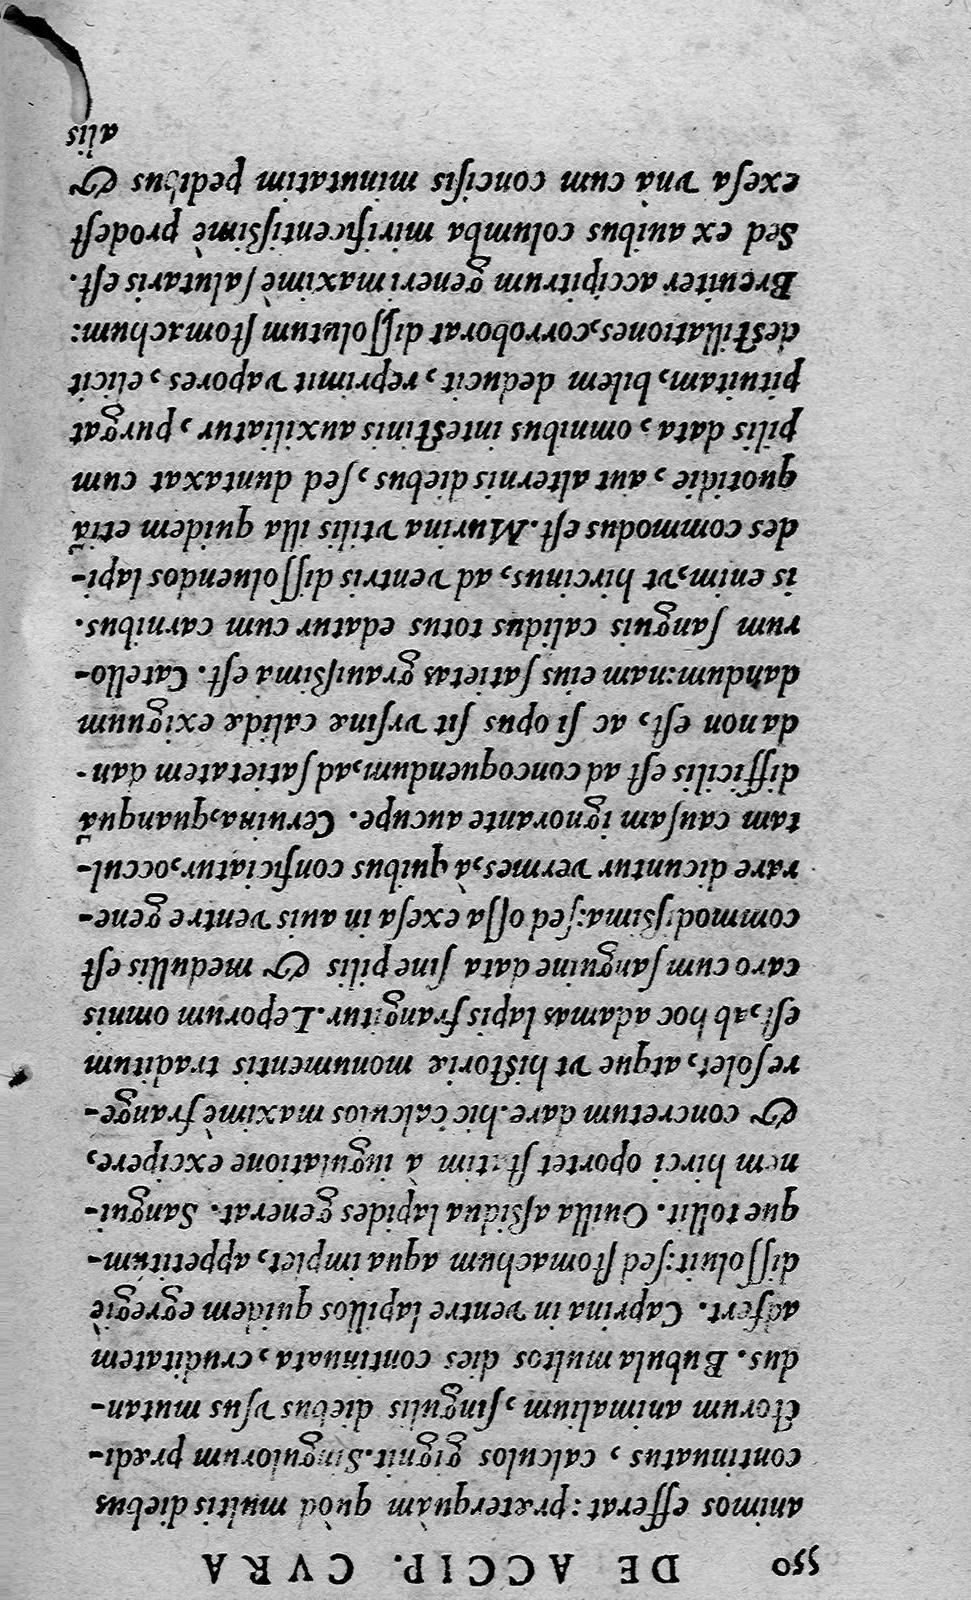 550 DE ACCIP. CVRA
animos efferat: præterquàm quòd multis diebus
continuatus, calculos gignit. Singulorum prædi-
ctorum animalium, singulis diebus vsus mutan-
dus. Bubula multos dies continuata, cruditatem
adfert. Caprina in ventre lapillos quidem egregiè
dissoluit: sed stomachum aqua implet, appetitum-
que tollit. Ouilla assidua lapides generat. Sangui-
nem hirci oportet statim à iugulatione excipere,
& concretum dare. hic calculos maximè frange-
re solet, atque vt historiæ monumentis traditum
est, ab hoc adamas lapis frangitur. Leporum omnis
caro cum sanguine data sine pilis & medullis est
commodissima: sed ossa exesa in auis ventre gene-
rare dicuntur vermes, à quibus conficiatur, occul-
tam causam ignorante aucupe. Ceruina, quanquã
difficilis est ad concoquendum, ad satietatem dan-
da non est, ac si opus sit vrsinæ calidæ exiguum
dandum: nam eius satietas grauissima est. Catello-
rum sanguis calidus totus edatur cum carnibus.
is enim, vt hircinus, ad ventris dissoluendos lapi-
des commodus est. Murina vtilis illa quidem etiã
quotidie, aut alternis diebus, sed duntaxat cum
pilis data, omnibus intestinis auxiliatur, purgat
pituitam, bilem deducit, reprimit vapores, elicit
destillationes, corroborat dissolutum stomachum:
Breuiter accipitrum generi maximè salutaris est.
Sed ex auibus columba mirificentissimè prodest
exesa vnà cum concisis minutatim pedibus &
alis